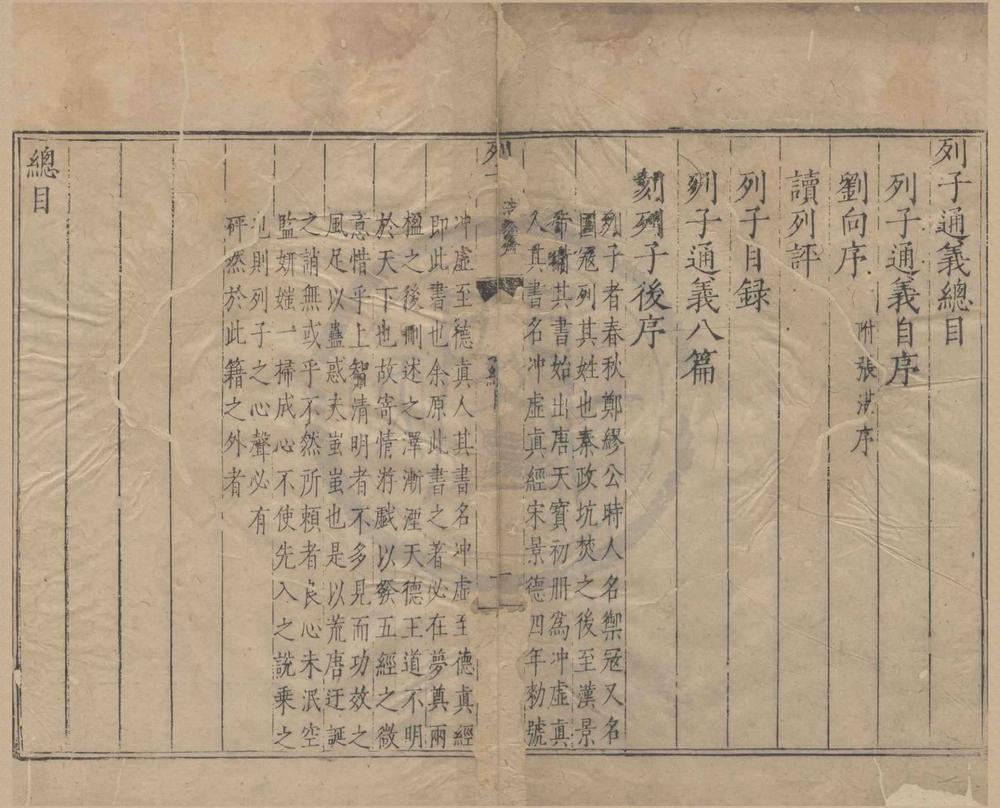 列子通義總目
列子通義自序
劉向序 附張湛序
讀列評
列子目録
列子通義八篇
刻列子後序
列子者春秋鄭繆公時人名禦冠又名
圄冦列其姓也秦政坑焚之後至漢景
帝續其書始出唐天寶初册爲冲虛眞
人其書名冲虛眞經宋景德四年勑號
列子
總目
一
冲虛至德眞人其書名冲虛至德眞經
即此書也余原此書之著必在夢奠兩
楹之後刪述之澤漸湮天德王道不明
於天下也故寄情將戲以發五經之微
意惜乎上智清明者不多見而功效之
風足以蠱惑夫蚩蚩也是以荒唐迂誕
之誚無或乎不然所頼者良心未泯空
監妍媸一掃成心不使先入之說乗之
也則列子之心聲必有
砰然於此籍之外者
總目